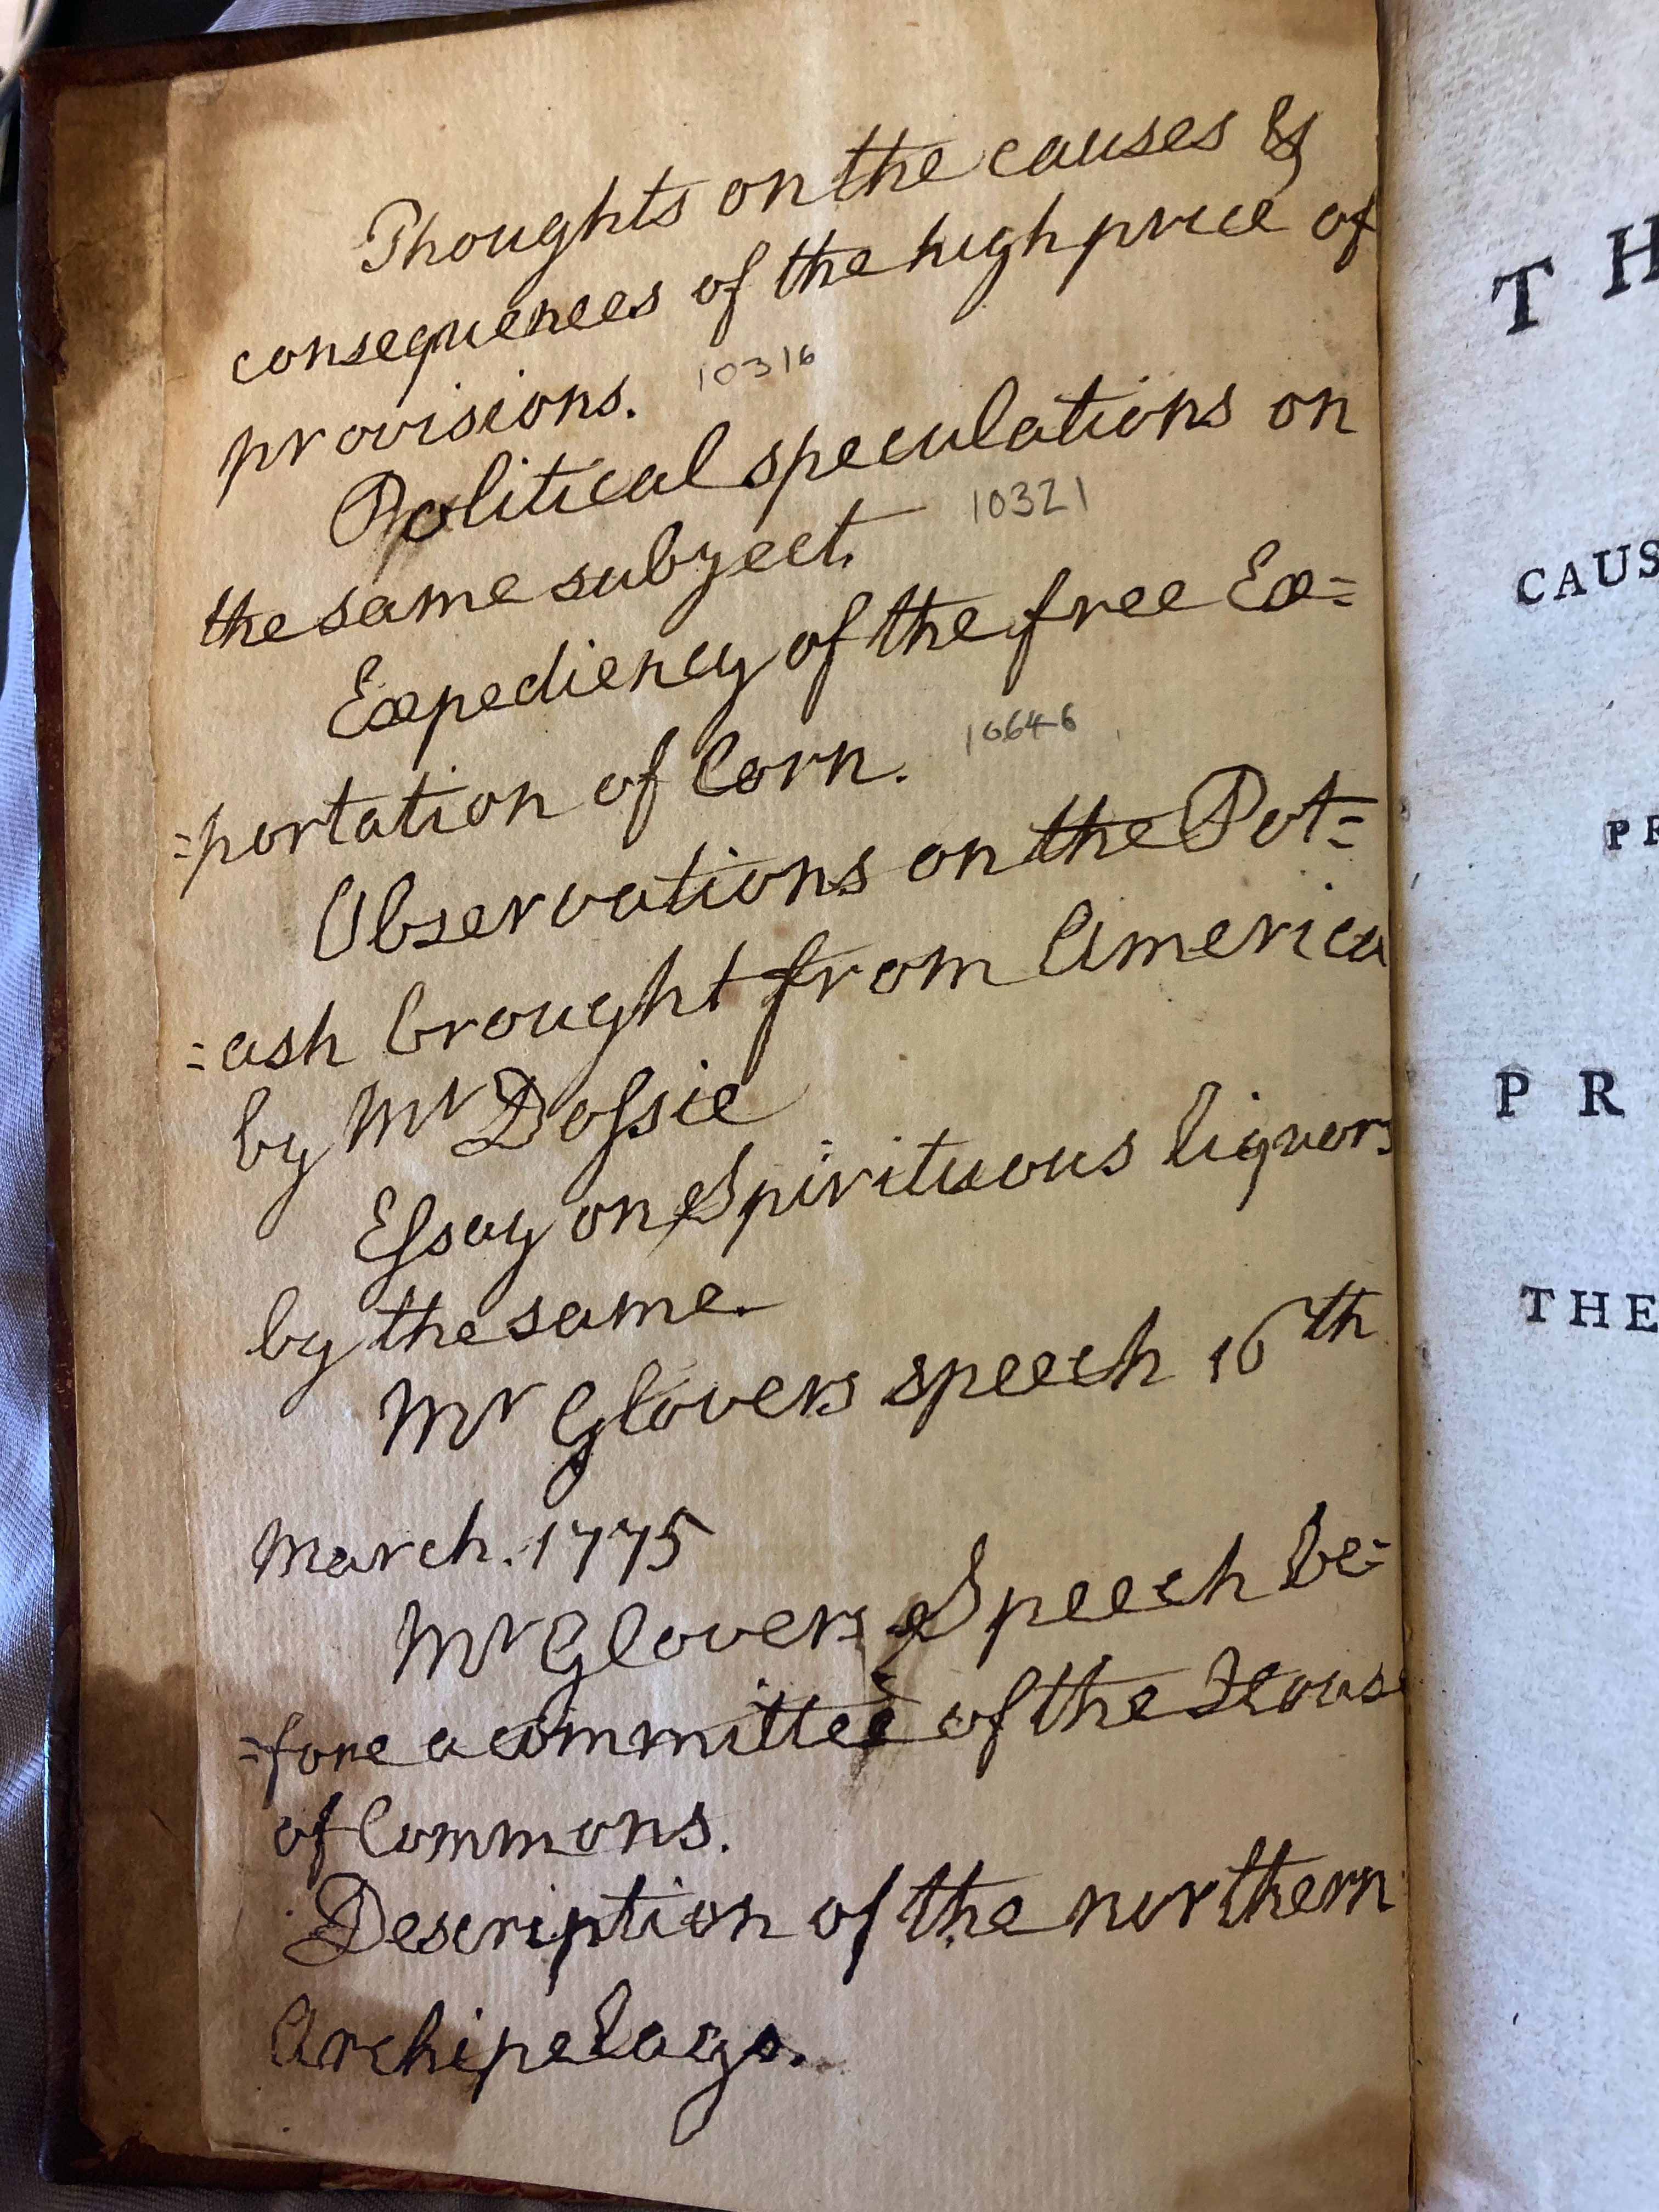 Thoughts on the causes &
consequences of the high price of
provisions. 10316
Political speculations on
the same subject. 10321
Expediency of the free Ex=
=portation of Corn. 10646
Observations on the Pot=
=ash brought from America
by Mr Dossie
Essay on Spirituous liquors
by the same.
Mr Glovers speech 16th
March. 1775
Mr Glovers Speech be=
=fore a committee of the House
of Commons.
Description of the northern
Archipelago.
TH
CAUS
PR
PR
THE